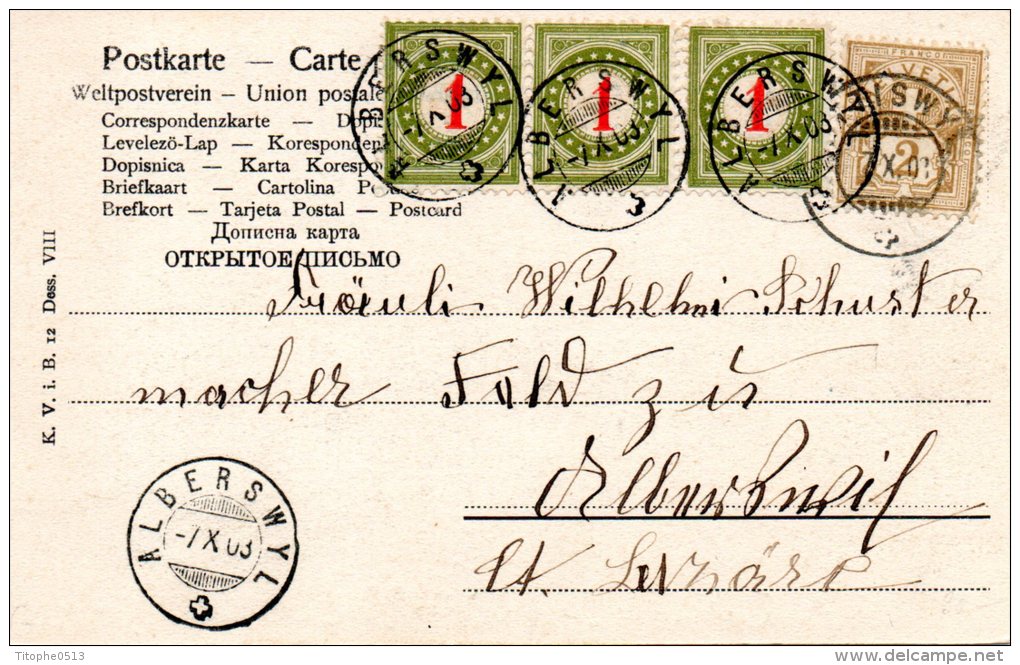 Postkarte — Carte
Weltpostverein – Union postale
Correspondenzkarte —
Levelező-Lap —
Dopisnica — Karta
Briefkaart — Cartolina
Brefkort — Tarjeta Postal — Postcard
Дописна карта
ОТКРЫТОЕ ПИСЬМО
K. V. i. B. 12 Dess. VIII
1
1
1
FRANCO
2
ALBERSWYL
-7 X 03
ALBERSWYL
-7 X 03
ALBERSWYL
-7 X 03
Fräuli Wilhelmi Schuster
macher Feld zu
Alberswil
Ct. Luzärn
ALBERSWYL
-7 X 03
Titophe0513